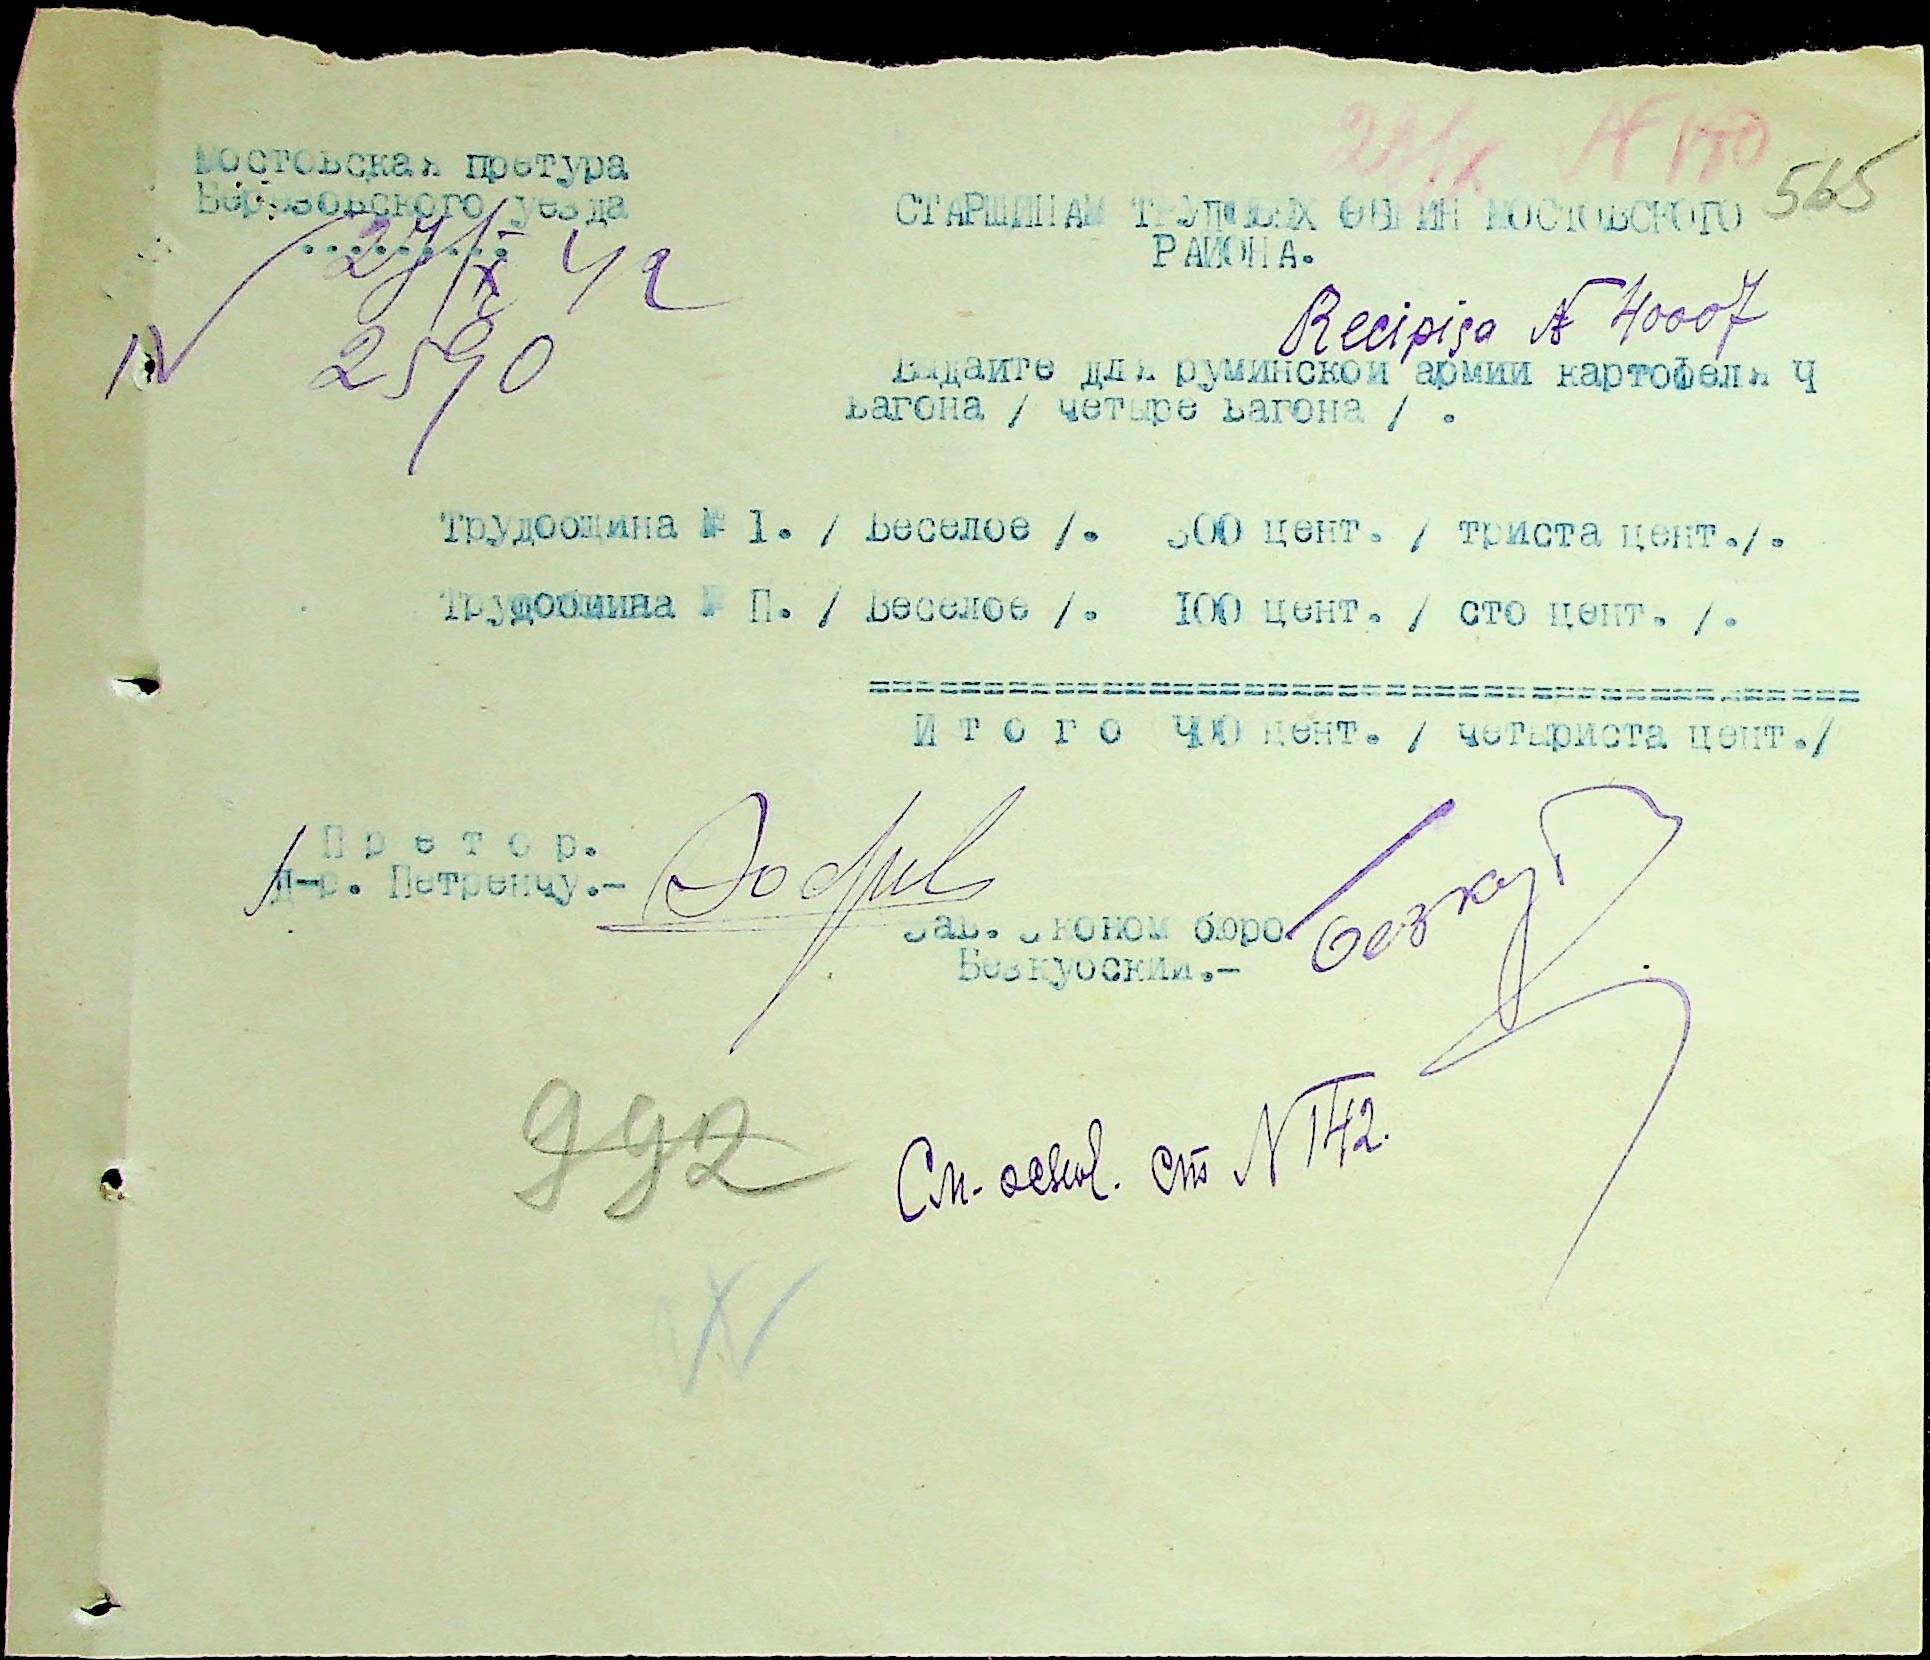 Мостовская претура
Березовского уезда
.........
27/IX 42
N 2590
565
СТАРШИНАМ ТРУДОВЫХ ОБЩИН МОСТОВСКОГО
РАЙОНА.
Recipisa № 40007
Выдайте для румынской армии картофеля 4
вагона / четыре вагона / .
Трудобщина № 1. / Веселое /. 300 цент. / триста цент./.
Трудобщина № П. / Веселое /. 100 цент. / сто цент. /.
И т о г о 400 цент. / четыриста цент./
П р е т о р.
Д-р. Петренчу.-
Зав. Эконом бюро
Безкубский.-
992
См. основ. ст N 142.